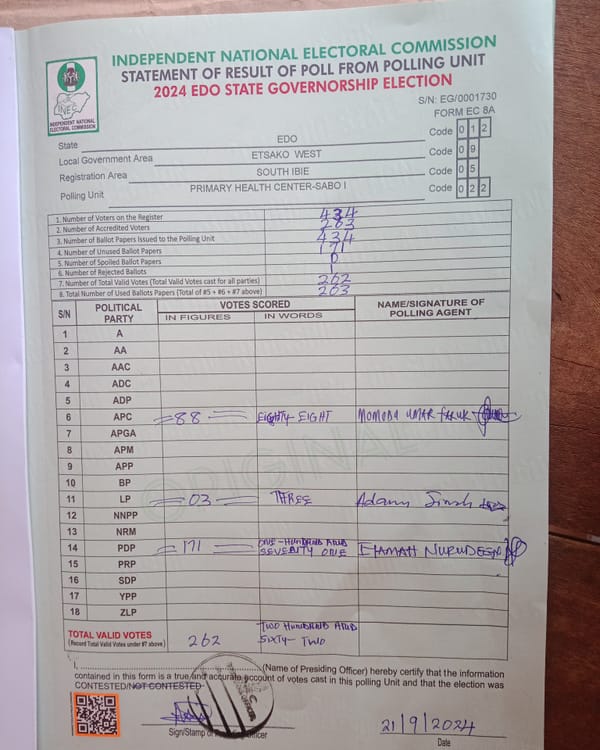 INDEPENDENT NATIONAL ELECTORAL COMMISSION
STATEMENT OF RESULT OF POLL FROM POLLING UNIT
2024 EDO STATE GOVERNORSHIP ELECTION
INEC
INDEPENDENT NATIONAL
ELECTORAL COMMISSION
S/N: EG/0001730
FORM EC 8A
State EDO Code 0 1 2
Local Government Area ETSAKO WEST Code 0 9
Registration Area SOUTH IBIE Code 0 5
Polling Unit PRIMARY HEALTH CENTER-SABO I Code 0 2 2
1. Number of Voters on the Register 434
2. Number of Accredited Voters 263
3. Number of Ballot Papers Issued to the Polling Unit 434
4. Number of Unused Ballot Papers 171
5. Number of Spoiled Ballot Papers 0
6. Number of Rejected Ballots 1
7. Number of Total Valid Votes (Total Valid Votes cast for all parties) 262
8. Total Number of Used Ballots Papers (Total of #5 + #6 + #7 above) 263
S/N POLITICAL PARTY VOTES SCORED NAME/SIGNATURE OF POLLING AGENT
IN FIGURES IN WORDS
1 A
2 AA
3 AAC
4 ADC
5 ADP
6 APC 88 EIGHTY-EIGHT MOMODU UMAR FARUK
7 APGA
8 APM
9 APP
10 BP
11 LP 03 THREE Adamu
12 NNPP
13 NRM
14 PDP 171 ONE-HUNDRED AND SEVENTY ONE ETAMAH NURUDEEN
15 PRP
16 SDP
17 YPP
18 ZLP
ORIGINAL
TOTAL VALID VOTES 262 TWO HUNDRED AND
(Record Total Valid Votes under #7 above) SIXTY-TWO
I, (Name of Presiding Officer) hereby certify that the information
contained in this form is a true and accurate account of votes cast in this polling Unit and that the election was
CONTESTED/NOT CONTESTED
Sign/Stamp of Presiding Officer
21/9/2024
Date